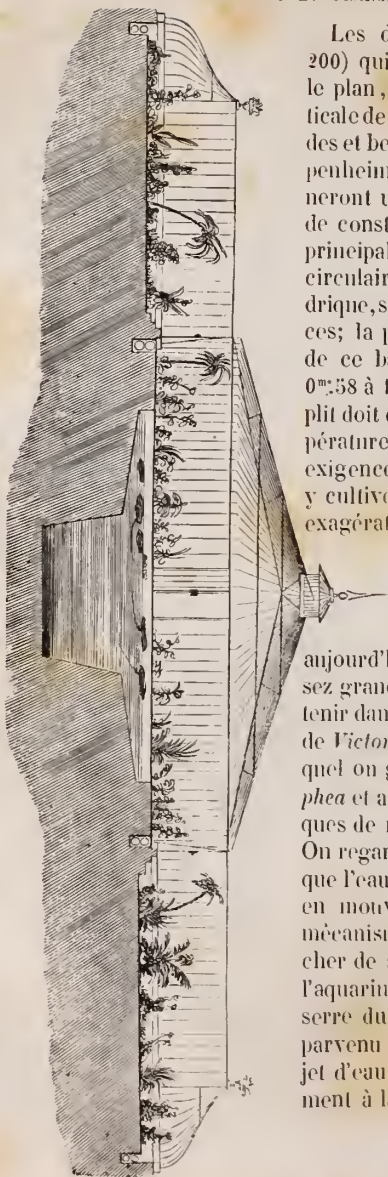 Les d
200) qui
le plan,
ticale de
des et be
penheim
neront u
de const
principal
circulair
drique, s
ces; la p
de ce b
0m.58 à
plit doit
pérature
exigence
y cultive
exagérat
aujourd'h
sez grand
tenir dan
de Victor
quel on g
phea et a
ques de
On regar
que l'eau
en mouv
mécanism
cher de
l'aquariu
serre du
parvenu
jet d'eau
ment à l